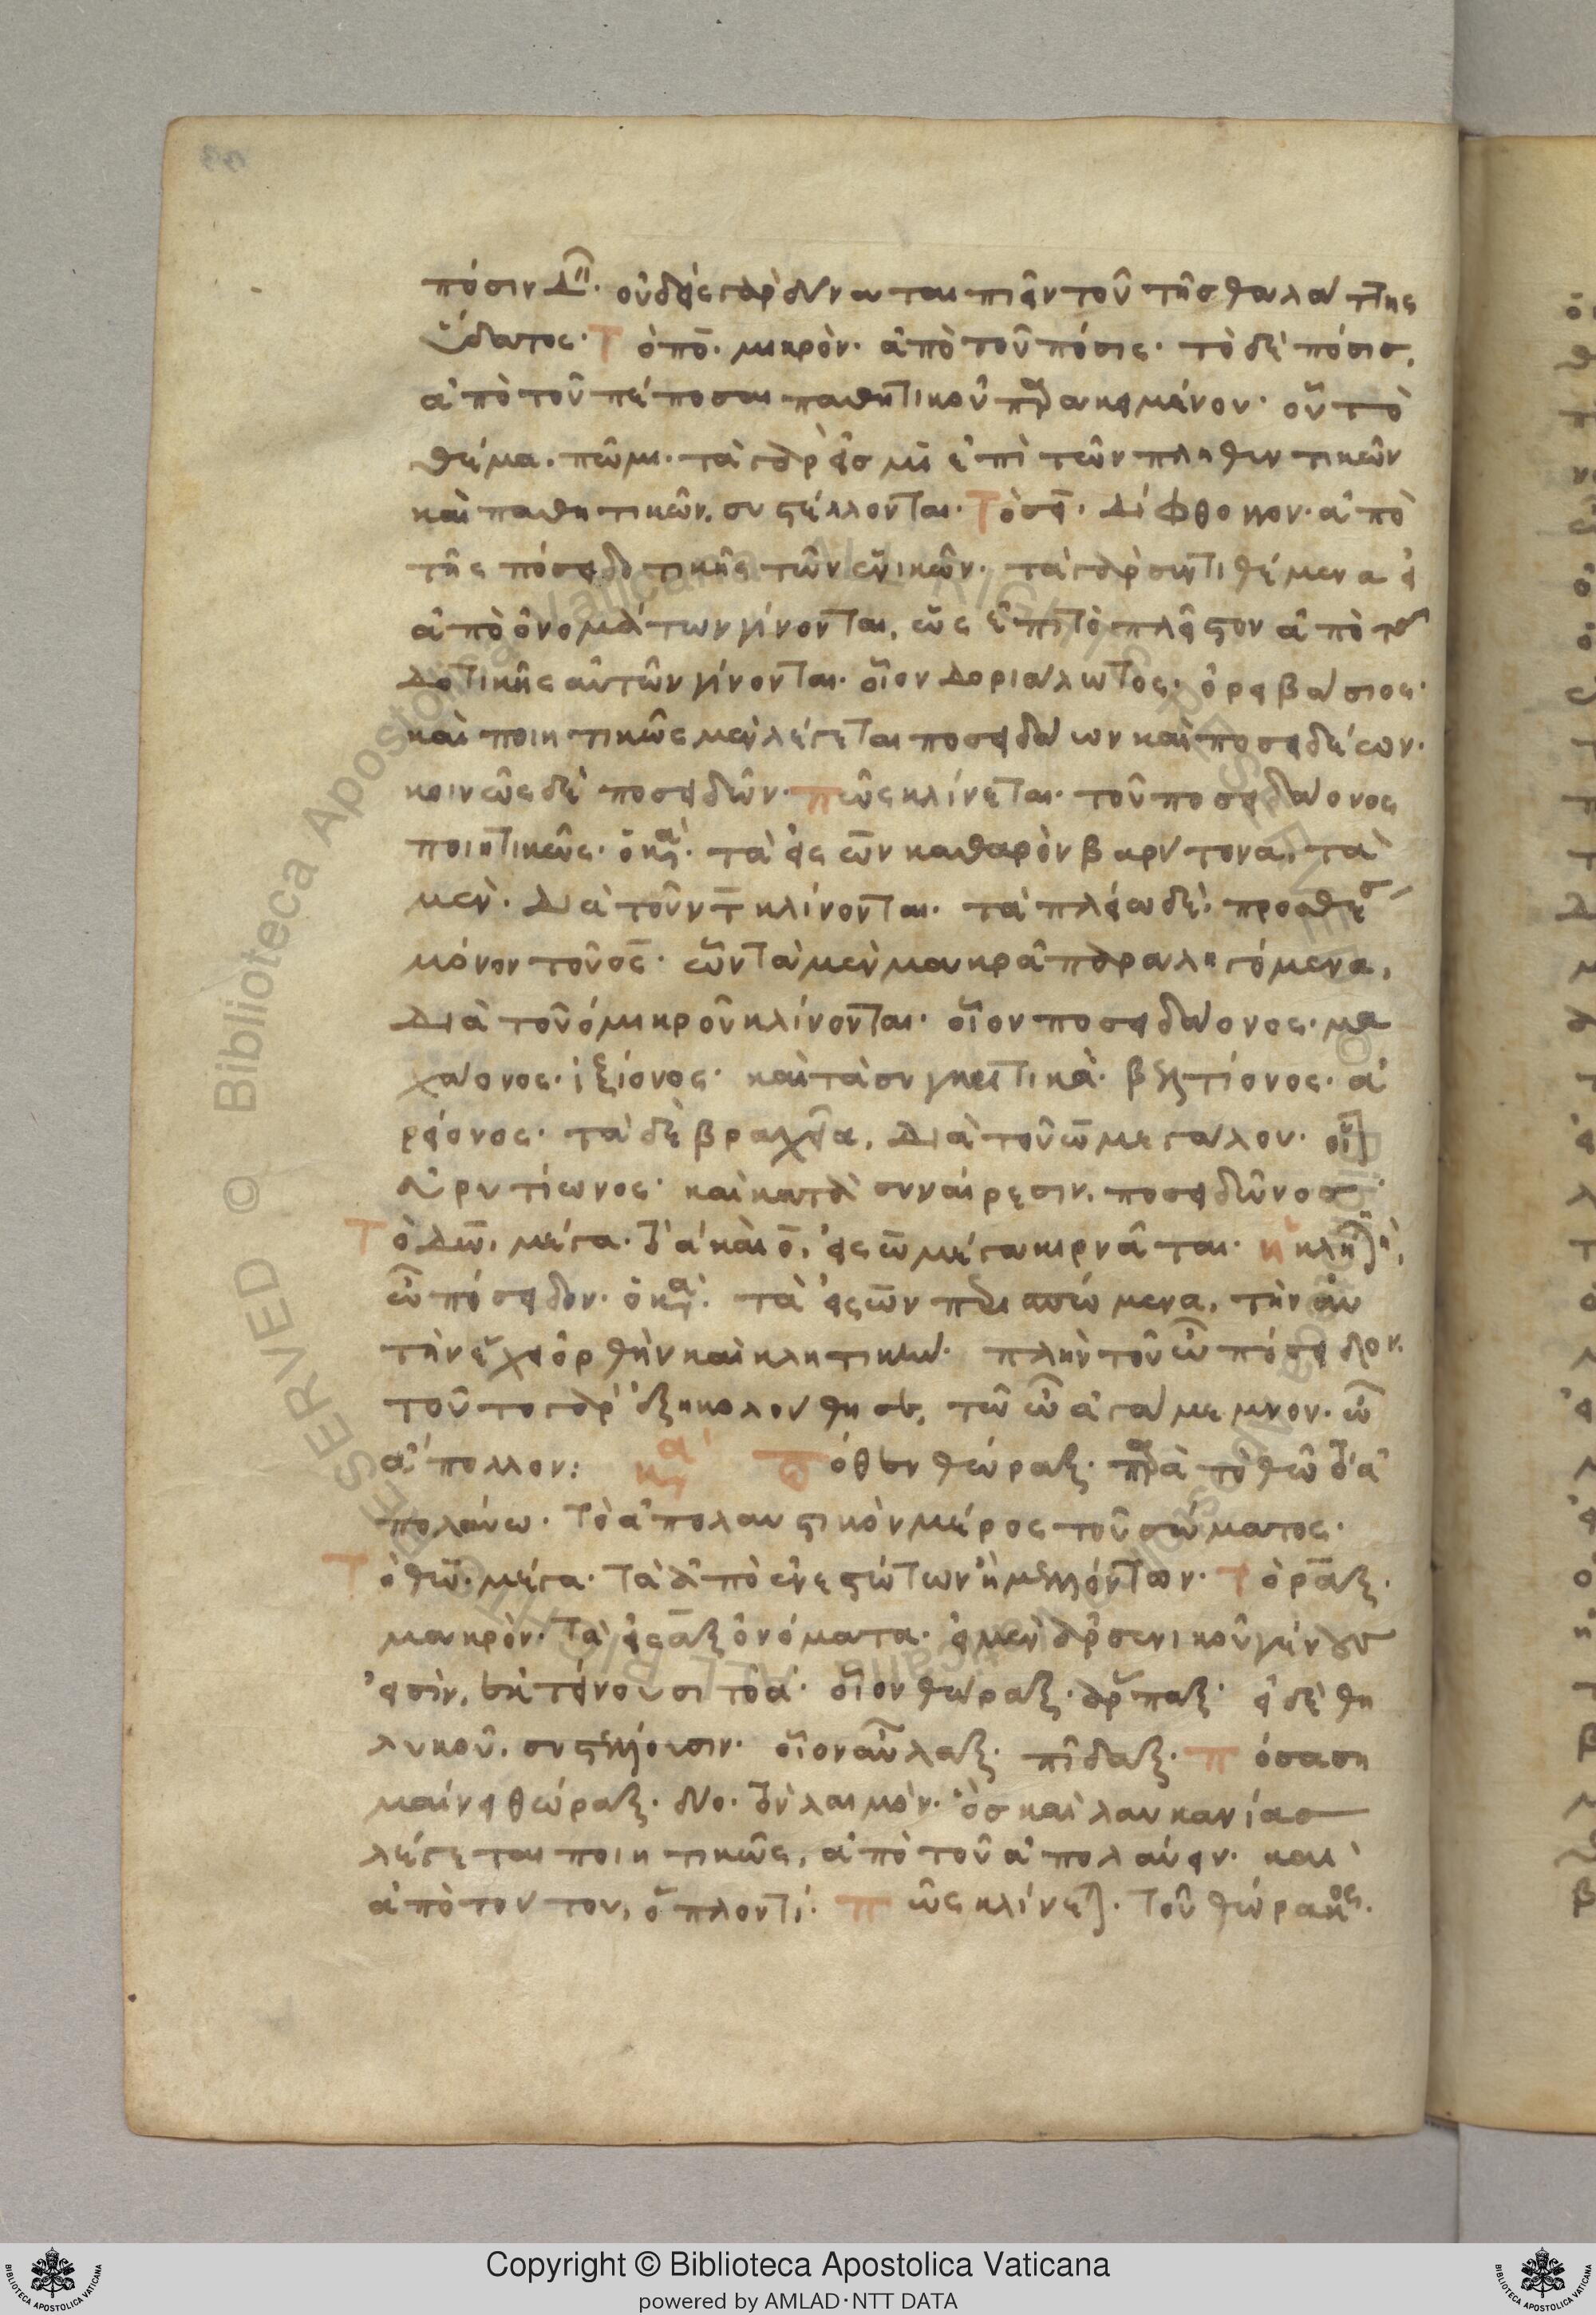 πόσιν δεῖ· οὐδεὶς γὰρ δύναται πιεῖν τοῦ τῆς θαλάττης
ὕδατος· Τὸ πο̄· μικρόν· ἀπὸ τοῦ πόσις· τὸ δὲ πόσις,
ἀπὸ τοῦ πέποσαι παθητικοῦ παρακειμένου· οὗ τὸ
θέμα. πῶμι· τὰ γὰρ εἰς μῑ ἐπὶ τῶν πληθυντικῶν
καὶ παθητικῶν, συστέλλονται· Τὸ σεῑ· δίφθογγον· ἀπὸ
τῆς πόσει δοτικῆς τῶν ἑνικῶν· τὰ γὰρ συντιθέμενα εἰ
ἀπὸ ὀνομάτων γίνονται, ὡς ἐπιτοπλεῖστον ἀπὸ τῆς
δοτικῆς αὐτῶν γίνονται· οἷον δοριάλωτος· ὀρειβάσιος·
καὶ ποιητικῶς μὲν λέγεται ποσειδάων καὶ ποσειδέων·
κοινῶς δὲ ποσειδῶν· πῶς κλίνεται· τοῦ ποσειδάονος
ποιητικῶς· ὁ κα̣· τὰ εἰς ω̄ν καθαρὸν βαρύτονα, τὰ
μὲν· διὰ τοῦ ντ̄ κλίνονται· τὰ πλείω δὲ· προσθέσει
μόνον τοῦ ος̄· ὧν τὰ μὲν μακρᾶ παραληγόμενα,
διὰ τοῦ ὁμικροῦ κλίνονται· οἷον ποσειδάονος· μα
χάονος· ἰξίονος· καὶ τὰ συγκριτικὰ· βελτίονος· ἀ
ρείονος· τὰ δὲ βραχεῖα, διὰ τοῦ ω̄ μεγάλου· οἷον
δρυτίωνος· καὶ κατὰ συναίρεσιν, ποσειδῶνος·
Τὸ δω̄, μέγα· τὸ ᾱ καὶ ο̄, εἰς ω̄ μέγα κιρνᾶται· ἡ κλητική,
ὦ πόσειδον· ὁ κα̣· τὰ εἰς ω̄ν περισπώμενα, τὴν αὐ
τὴν ἔχει ὀρθὴν καὶ κλητικήν· πλὴν τοῦ ὦ πόσειδον.
τοῦτο γὰρ ἐξηκολούθησεν, τῶ ὦ ἀγάμεμνον· ὦ
ἄπολλον: κα̣ Πόθεν θώραξ· παρὰ τὸ θῶ τὸ ἀ
πολαύω· τὸ ἀπολαυστικὸν μέρος τοῦ σώματος·
Τὸ θω̄· μέγα· τὰ ἀπὸ ἐνεστώτων ἢ μελλόντων· Τὸ ρᾱξ·
μακρόν· τὰ εἰς ᾱξ ὀνόματα· εἰ μὲν ἀρσενικοῦ γένους
εἰσὶν, ἐκτείνουσι τὸ ᾱ· οἷον θώραξ· ἅρπαξ· εἰ δὲ θη
λυκοῦ, συστέλλουσιν· οἷον αὖλαξ· πῖδαξ· Πόσα ση
μαίνει θώραξ· δύο· τὸν λαιμόν· ὃς καὶ λαυκανίας
λέγεται ποιητικῶς, ἀπὸ τοῦ ἀπολαύειν· καὶ
ἀπὸ τούτου, ὅπλον τί· Πῶς κλίνεται· τοῦ θώρακος·
Copyright © Biblioteca Apostolica Vaticana
powered by AMLAD·NTT DATA